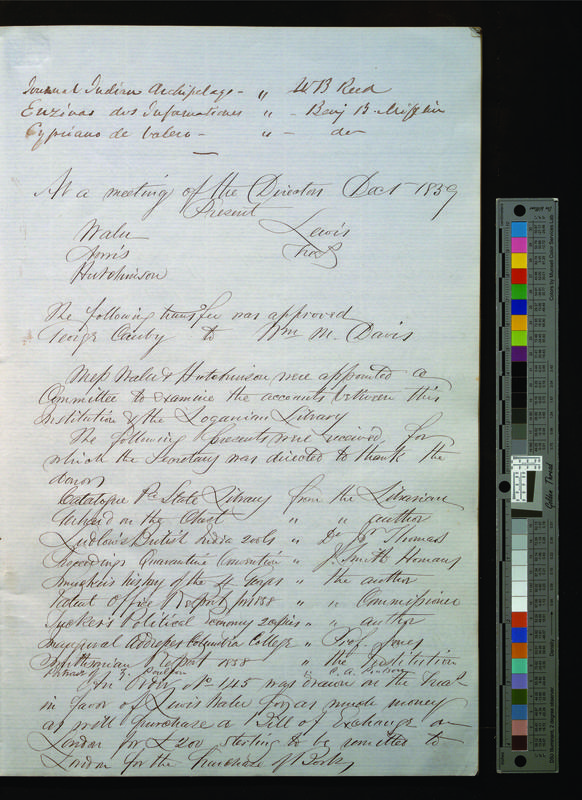 Journal Indian Archipelago - " W B Reed
Enzinas dos Informationes " - Benj B. Mifflin
Cypriano de Valero - " - do
At a meeting of the Directors Oct 1859
Present
Waln Lewis
Norris
Hutchinson
The following transfer was approved
George Canby to Wm M. Davis
Mess Waln & Hutchinson were appointed a
Committee to examine the accounts between this
Institution & the Loganian Library
The following presents were received, for
which the Secretary was directed to thank the
donors
Catalogue Pa State Library from the Librarian
on the Chest " " author
Ludlow's British India 2 vols " Dr Thomas
Proceedings Quarantine Convention " J. Smith Homans
history of the " the author
Patent Office Reports for 1858 " " Commissioner
Tucker's Political economy 2 copies " " author
Inaugural Addresses Columbia College " Prof. Jones
Smithsonian Report 1858 " the Institution
Z. Poulson " C. A. Poulson
An Order No 445 was drawn on the Treasr
in favor of Lewis Waln for as much money
as will purchase a Bill of Exchange on
London for £200 sterling to be remitted to
London for the Purchase of Books